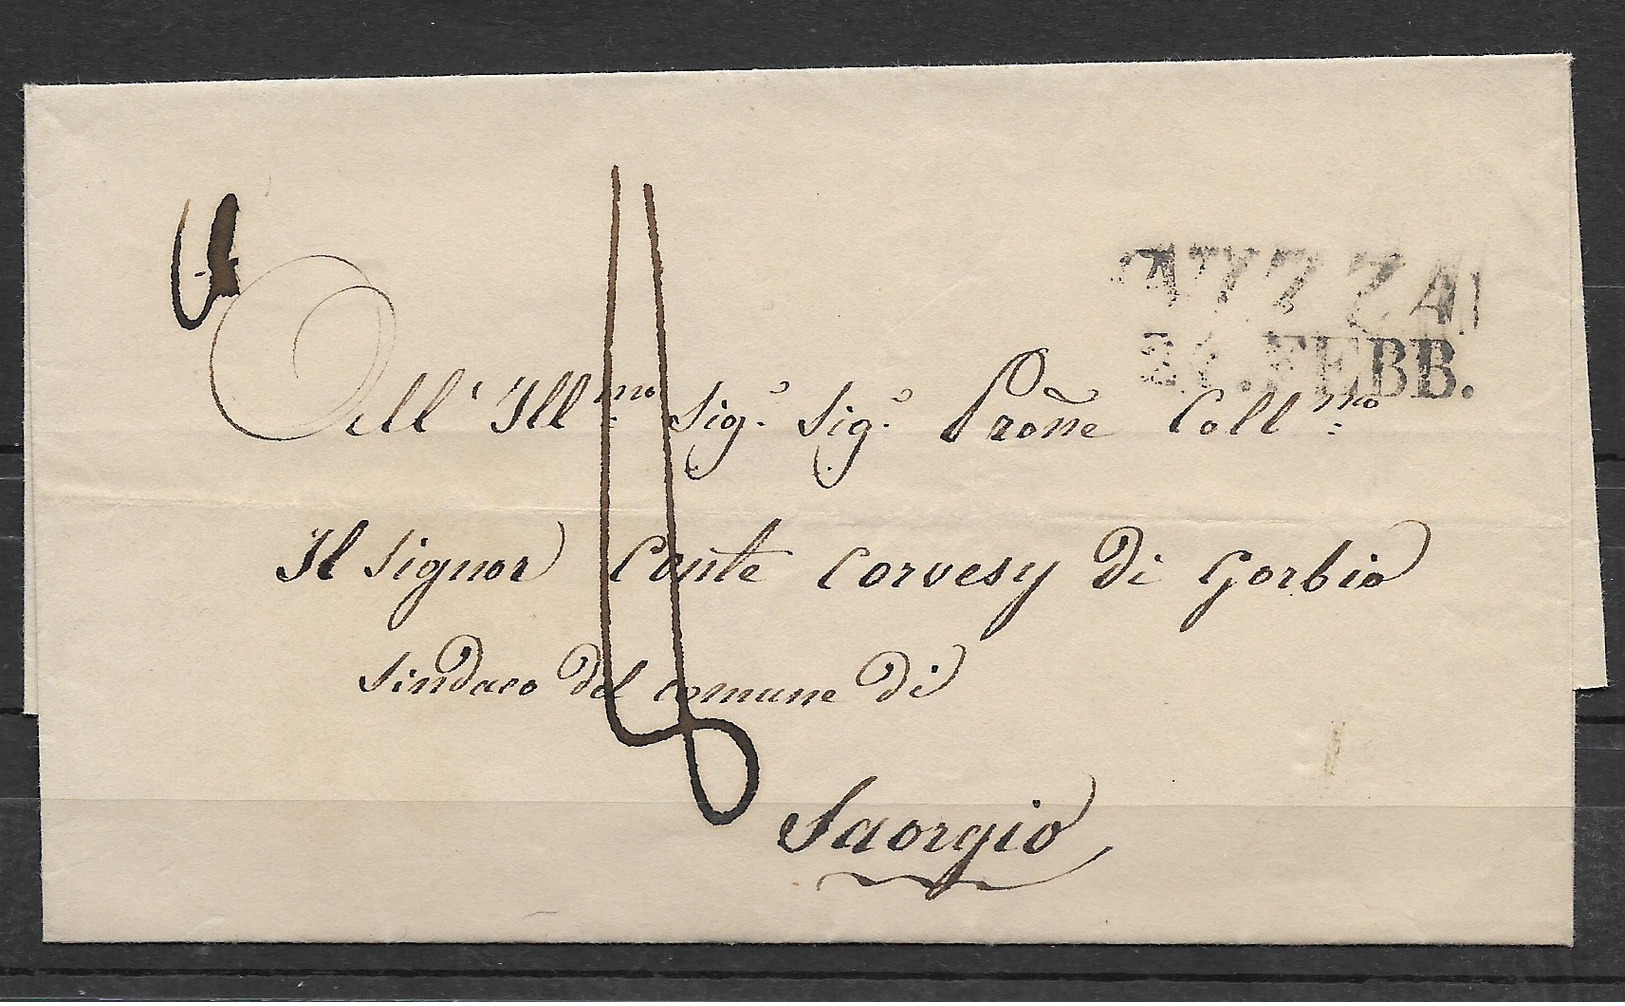 NIZZA
FEBB.
All' Ill.mo Sig.e Sig.e Prõne Coll.mo
Il Signor Conte Corvesy Di Gorbio
Sindaco del comune di
Saorgio